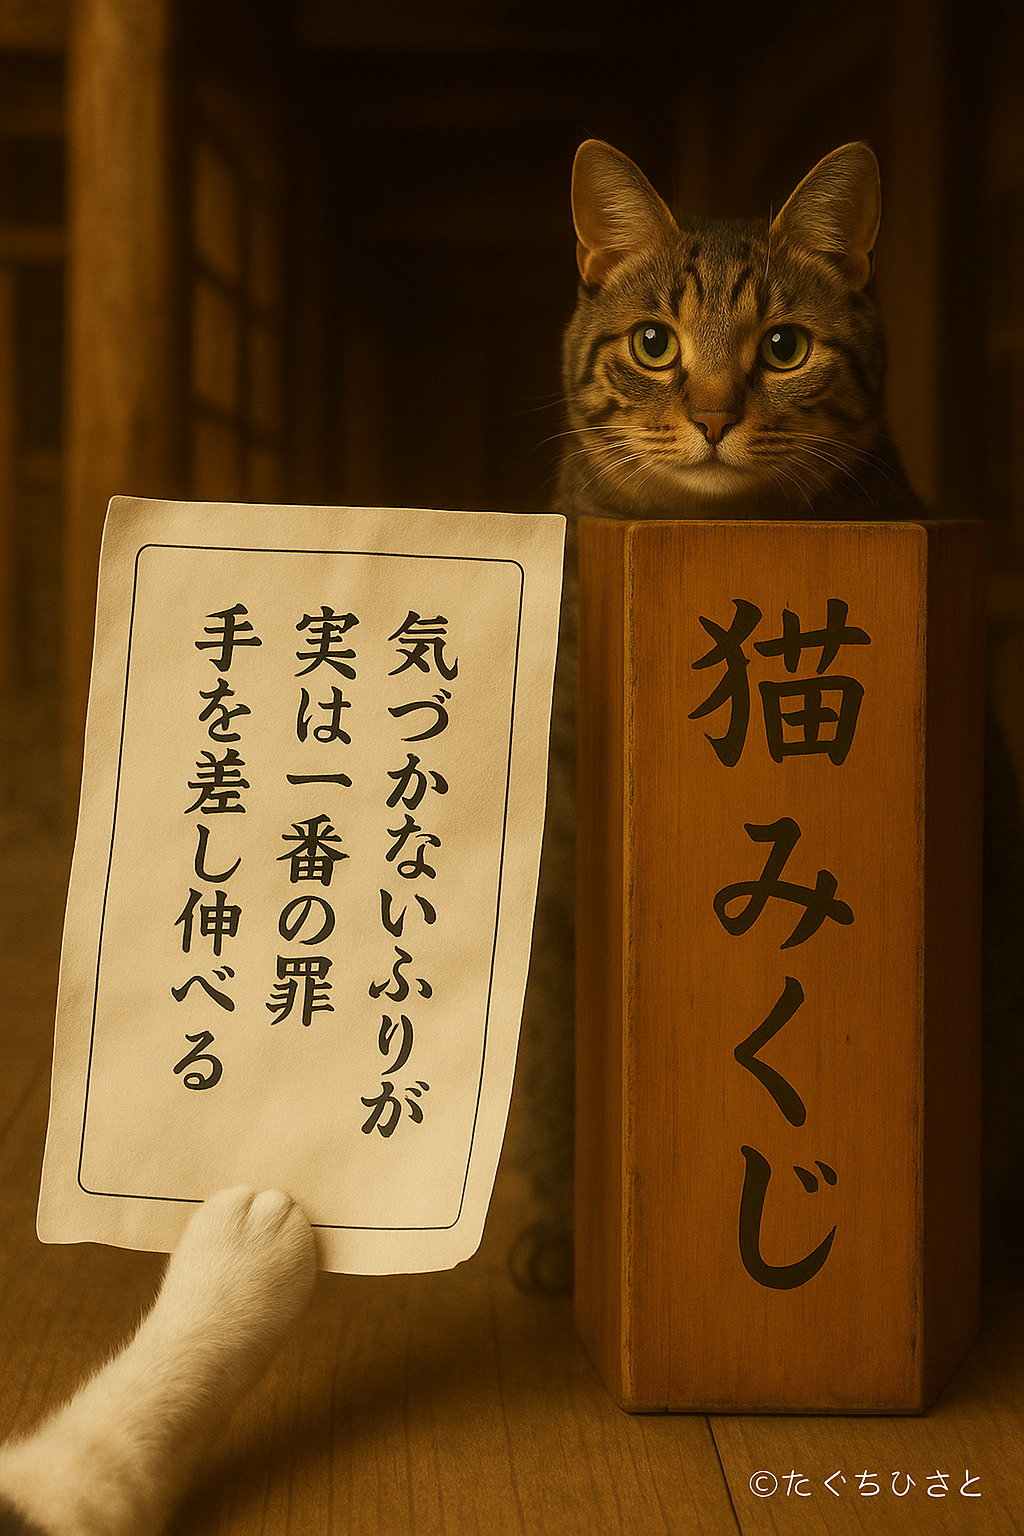 気づかないふりが
実は一番の罪
手を差し伸べる
猫みくじ
©たぐちひさと